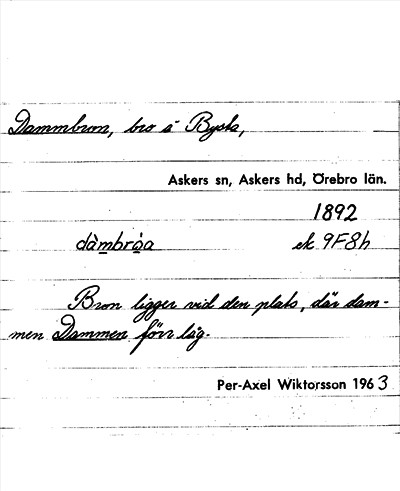 Dammbron, bro å Bysta,
Askers sn, Askers hd, Örebro län.
1892
dàmbròa ek 9F8h
Bron ligger vid den plats, där dam-
men Dammen förr låg.
Per-Axel Wiktorsson 1963